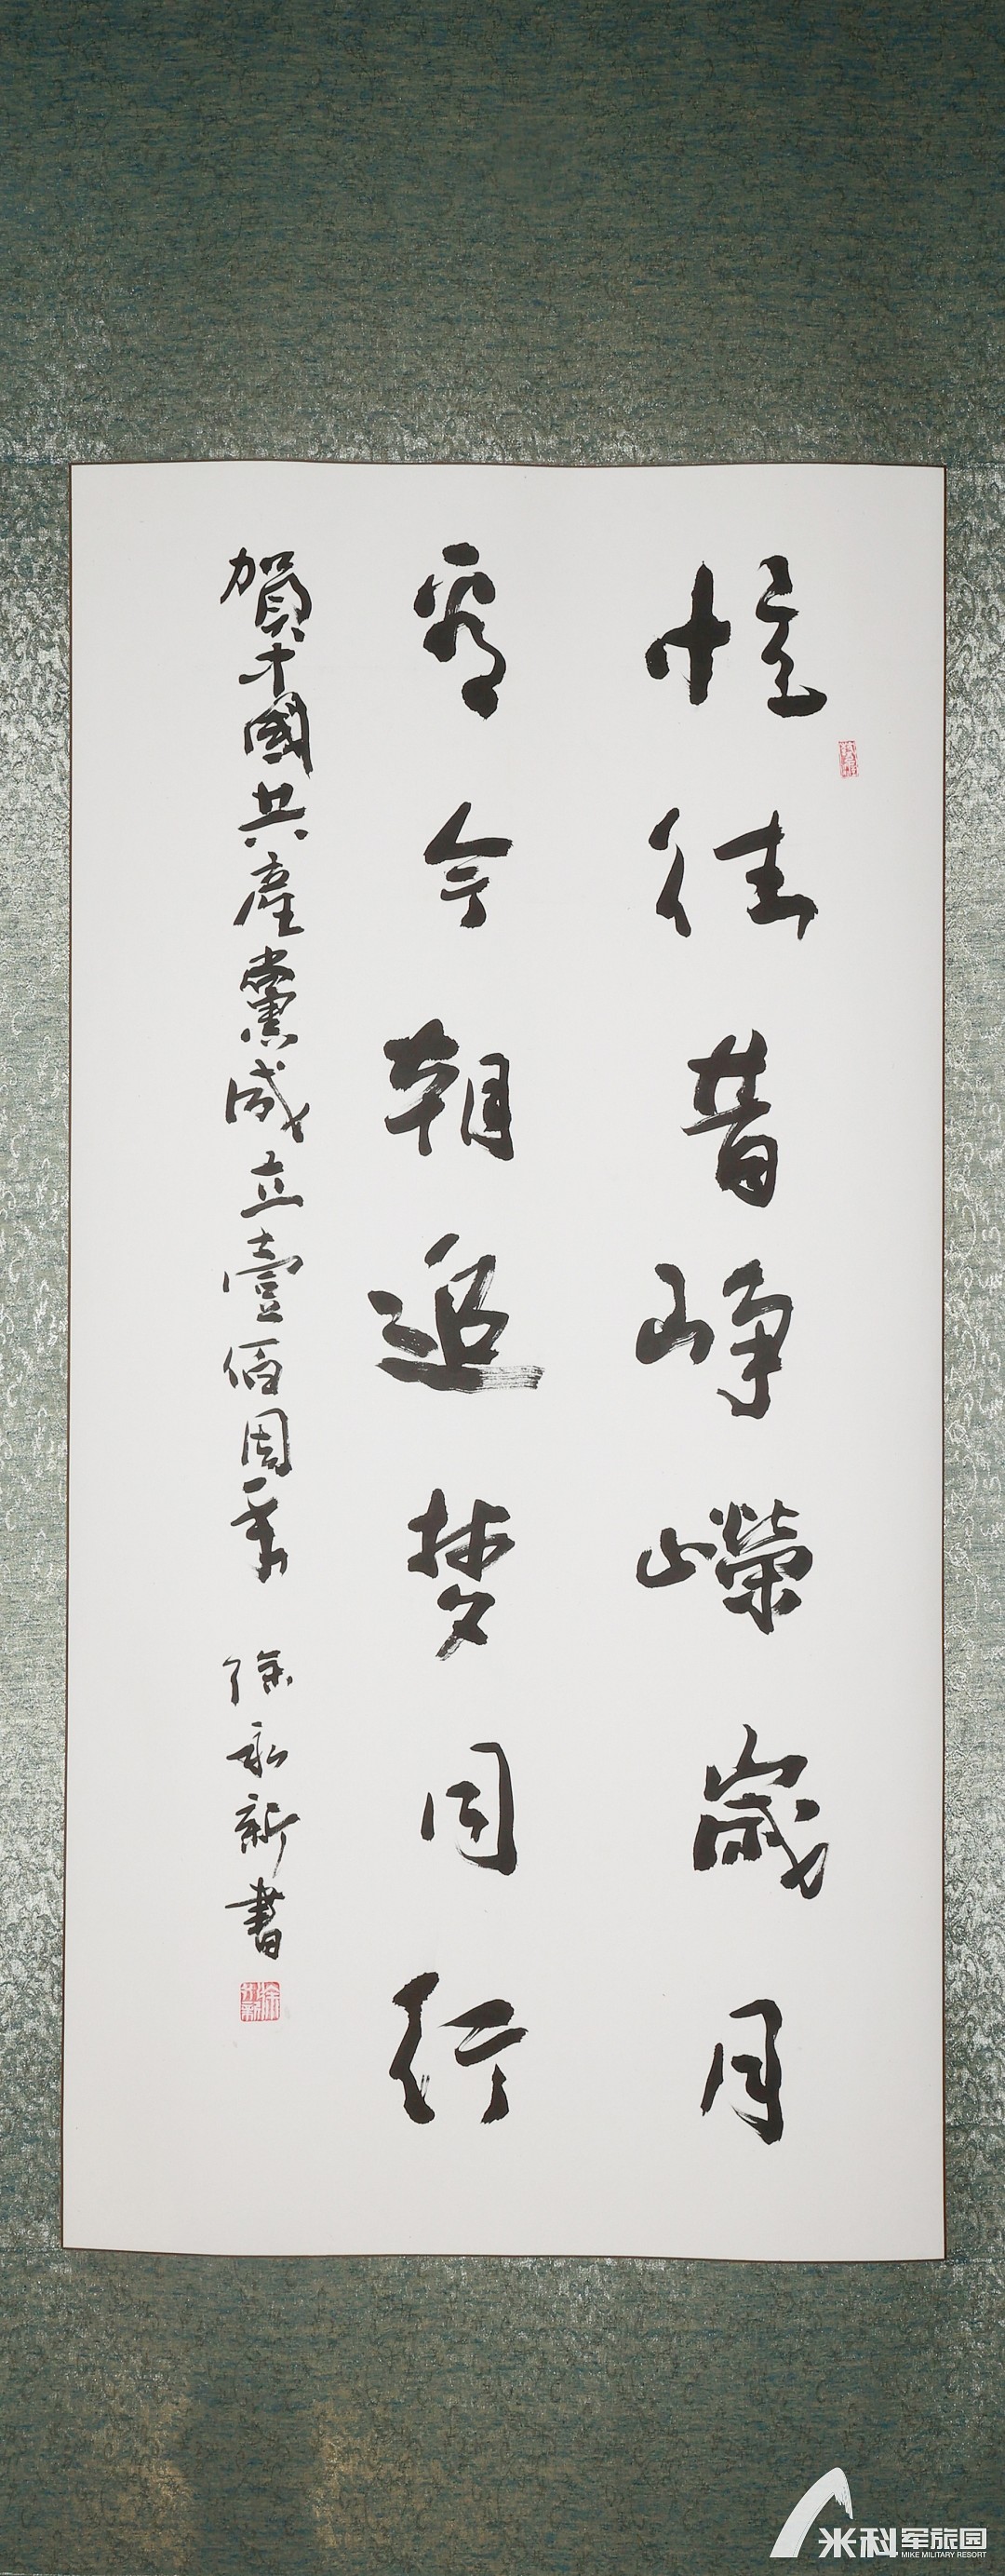 憶往昔崢嶸歲月
看今朝追梦同行
賀中國共產黨成立壹佰周年
徐永新書
米科军旅园
MIKE MILITARY RESORT